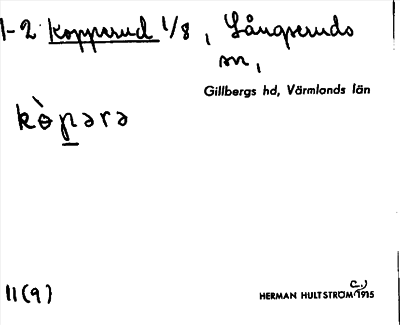 1-2 Kopperud 1/8, Långseruds
sn,
Gillbergs hd, Värmlands län
kɵ̀pərə
11(9)
HERMAN HULTSTRÖM (c.) 1915